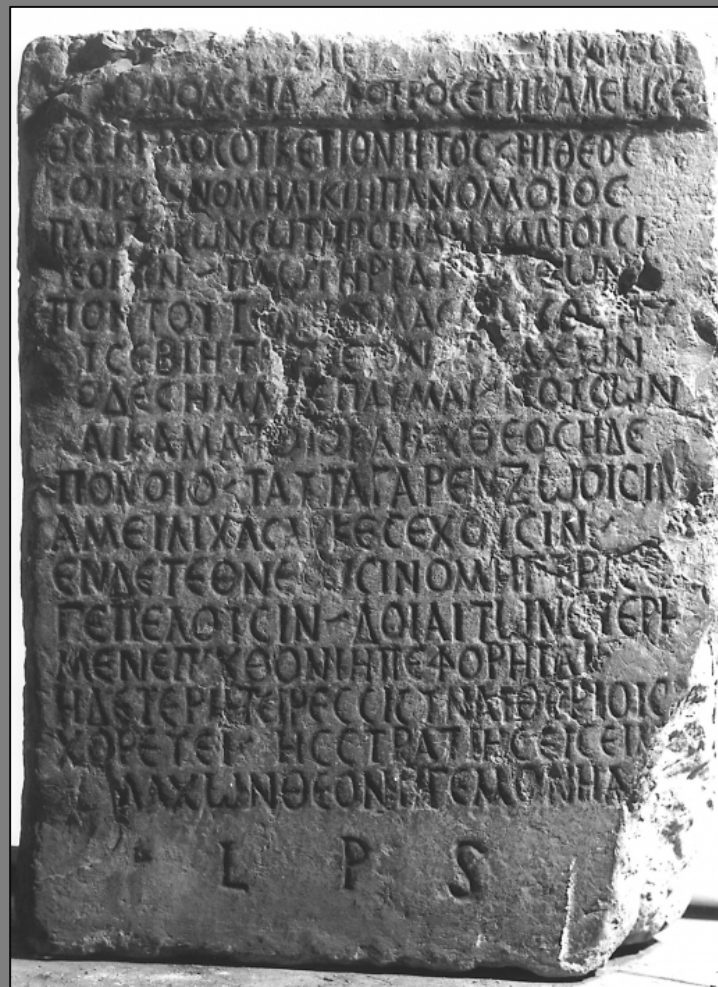 ΚΟΥΡΟϹ ΕΓΩ ΚΑΛΕΩ ϹΕ
ΘΕΩ ΦΙΛΟϹ ΟΥΚΕΤΙ ΘΝΗΤΟϹ ΗΙΘΕΟϹ
ΚΟΥΡΟΙϹΙΝ ΟΜΗΛΙΚΙΗ ΠΑΝΟΜΟΙΟϹ
ΠΛΩΤΗΡΩΝ ϹΩΤΗΡϹΙΝ ΑΜΥΚΛΑΙΟΙϹΙ
ΘΕΟΙϹΙΝ ΠΛΩΤΗΡ ΕΩΝ
ΠΟΝΤΟΥ Τ
ΕΥϹΕΒΙΗ ΤΡΟΦΕΩΝ ΛΑΧΩΝ
ΤΟΔΕ ϹΗΜΑ ΠΕΠΑΥΜΑΙ ΝΟΥϹΩΝ
ΚΑΙ ΚΑΜΑΤΟΙΟ ΚΑΙ ΑΧΘΕΟϹ ΗΔΕ
ΠΟΝΟΙΟ ΤΑΥΤΑ ΓΑΡ ΕΝ ΖΩΟΙϹΙΝ
ΑΜΕΙΛΙΧΑ ϹΑΡΚΕϹ ΕΧΟΥϹΙΝ
ΕΝ ΔΕ ΤΕΘΝΕΙΩϹΙΝ ΟΜΗΓΥΡΙ
ΓΕ ΠΕΛΟΥϹΙΝ ΔΟΙΑΙ ΤΩΝ ΕΤΕΡΗ
ΜΕΝ ΕΠΙΧΘΟΝΙΗ ΠΕΦΟΡΗΤΑΙ
Η Δ ΕΤΕΡΗ ΤΕΙΡΕϹϹΙ ϹΥΝ ΑΙΘΕΡΙΟΙϹ
ΧΟΡΕΥΕΙ ΗϹ ϹΤΡΑΤΙΗϹ ΕΙϹ ΕΙΜΙ
ΛΑΧΩΝ ΘΕΟΝ ΗΓΕΜΟΝΗΑ
L P S